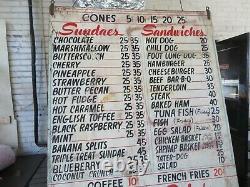 CONES 5 10 15 20 25
Sundaes Sandwiches
CHOCOLATE 25 35 HOT DOG
MARSHMALLOW 25 35 CHILI DOG
BUTTERSCOTCH 25 35 FOOT LONG DOG
CHERRY 25 35 HAMBURGER
PINEAPPLE 25 35 CHEESEBURGER
STRAWBERRY 25 35 BEEF BAR-B-Q
BUTTER PECAN 25 35 TENDERLOIN
HOT FUDGE 25 35 STEAK
HOT CARAMEL 25 35 BAKED HAM
ENGLISH TOFFEE 25 35 TUNA FISH
BLACK RASPBERRY 25 35 FISH
MINT 25 35 EGG SALAD
BANANA SPLITS 45
TRIPLE TREAT SUNDAE 45
BLUEBERRY 25 35 -DOG
COCONUT CRUNCH SALAD
COFFEE 10 FRENCH FRIES 20